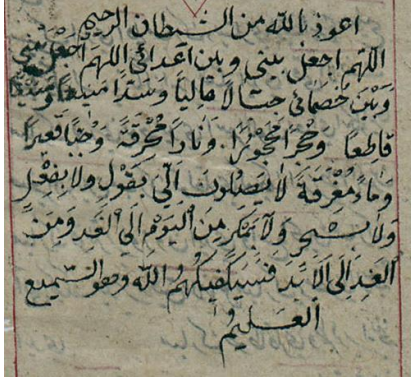 اعوذ بالله من الشيطان الرجيم
اللهم اجعل بيني وبين اعدائي اللهم اجعل بيني
وَبَيْنَ خصمائي حصالاً قالياً وَسَدًا منيعاً
قاطِعاً وَحِجْرًا مَحْجُوْرًا وَنَاراً مُحْرِقَةً
وَمَاءً مُغْرِقَةً لا يَصِلُونَ اِلَيَّ بِقَوْلٍ ولا بِفِعْلٍ
وَلا بِسِحْرٍ وَلا بِمَكْرٍ مِنَ الْيَوْمِ اِلَى الْغَدِ وَمِنَ
الْغَدِ اِلَى الْاَبَدِ فَسَيَكْفِيكَهُمُ اللهُ وهو السَّمِيع
الْعَلِيمُ